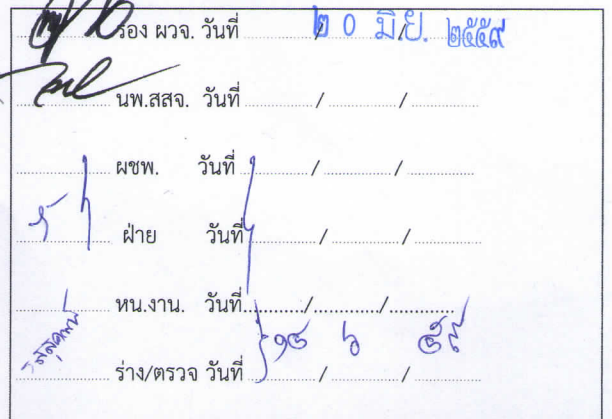 รอง ผวจ. วันที่ ๒ ๐ มิ.ย. ๒๕๕๙
นพ.สสจ. วันที่ ............/............/............
ผชพ. วันที่ ............/............/............
ฝ่าย วันที่ ............/............/............
หน.งาน. วันที่............/............/............
ร่าง/ตรวจ วันที่ ๑๕ / ๖ / ๕๙